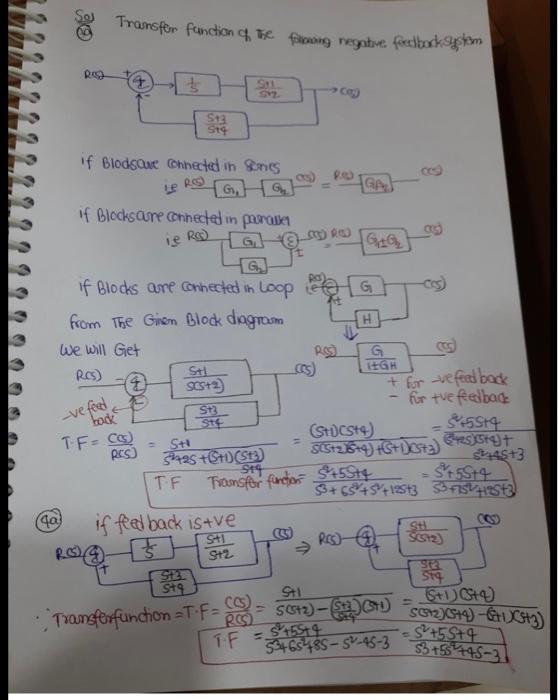 Sol
3a) Transfer function of The following negative feedback system
R(s) + Σ - 1/s S+1/S+2 C(s)
S+3/S+4
if Blocks are connected in Series
ie R(s) G1 G2 C(s) = R(s) G1G2 C(s)
if Blocks are connected in parallel
ie R(s) G1 Σ ± C(s) = R(s) G1±G2 C(s)
G2
if Blocks are connected in Loop ie R(s) Σ ± G C(s)
H
from The Given Block diagram ⇓
We will Get R(s) G/1±GH C(s)
R(s) Σ S+1/S(S+2) C(s) + for -ve feedback
-ve feed back S+3/S+4 - for +ve feedback
T.F = C(s)/R(s) = S+1/S²+2S+(S+1)(S+3)/S+4 = (S+1)(S+4)/S(S+2)(S+4)+(S+1)(S+3) = S²+5S+4/(S²+2S)(S+4)+S²+4S+3
T.F Transfer function = S²+5S+4/S3+6S²+S²+12S+3 = S²+5S+4/S3+7S²+12S+3
4a) if feed back is +ve
R(s) Σ + 1/S S+1/S+2 C(s) ⇒ R(s) Σ + S+1/S(S+2) C(s)
S+3/S+4 S+3/S+4
∴ Transfer function = T.F = C(s)/R(s) = S+1/S(S+2)-(S+3/S+4)(S+1) = (S+1)(S+4)/S(S+2)(S+4)-(S+1)(S+3)
T.F = S²+5S+4/S3+6S²+8S-S²-4S-3 = S²+5S+4/S3+5S²+4S-3